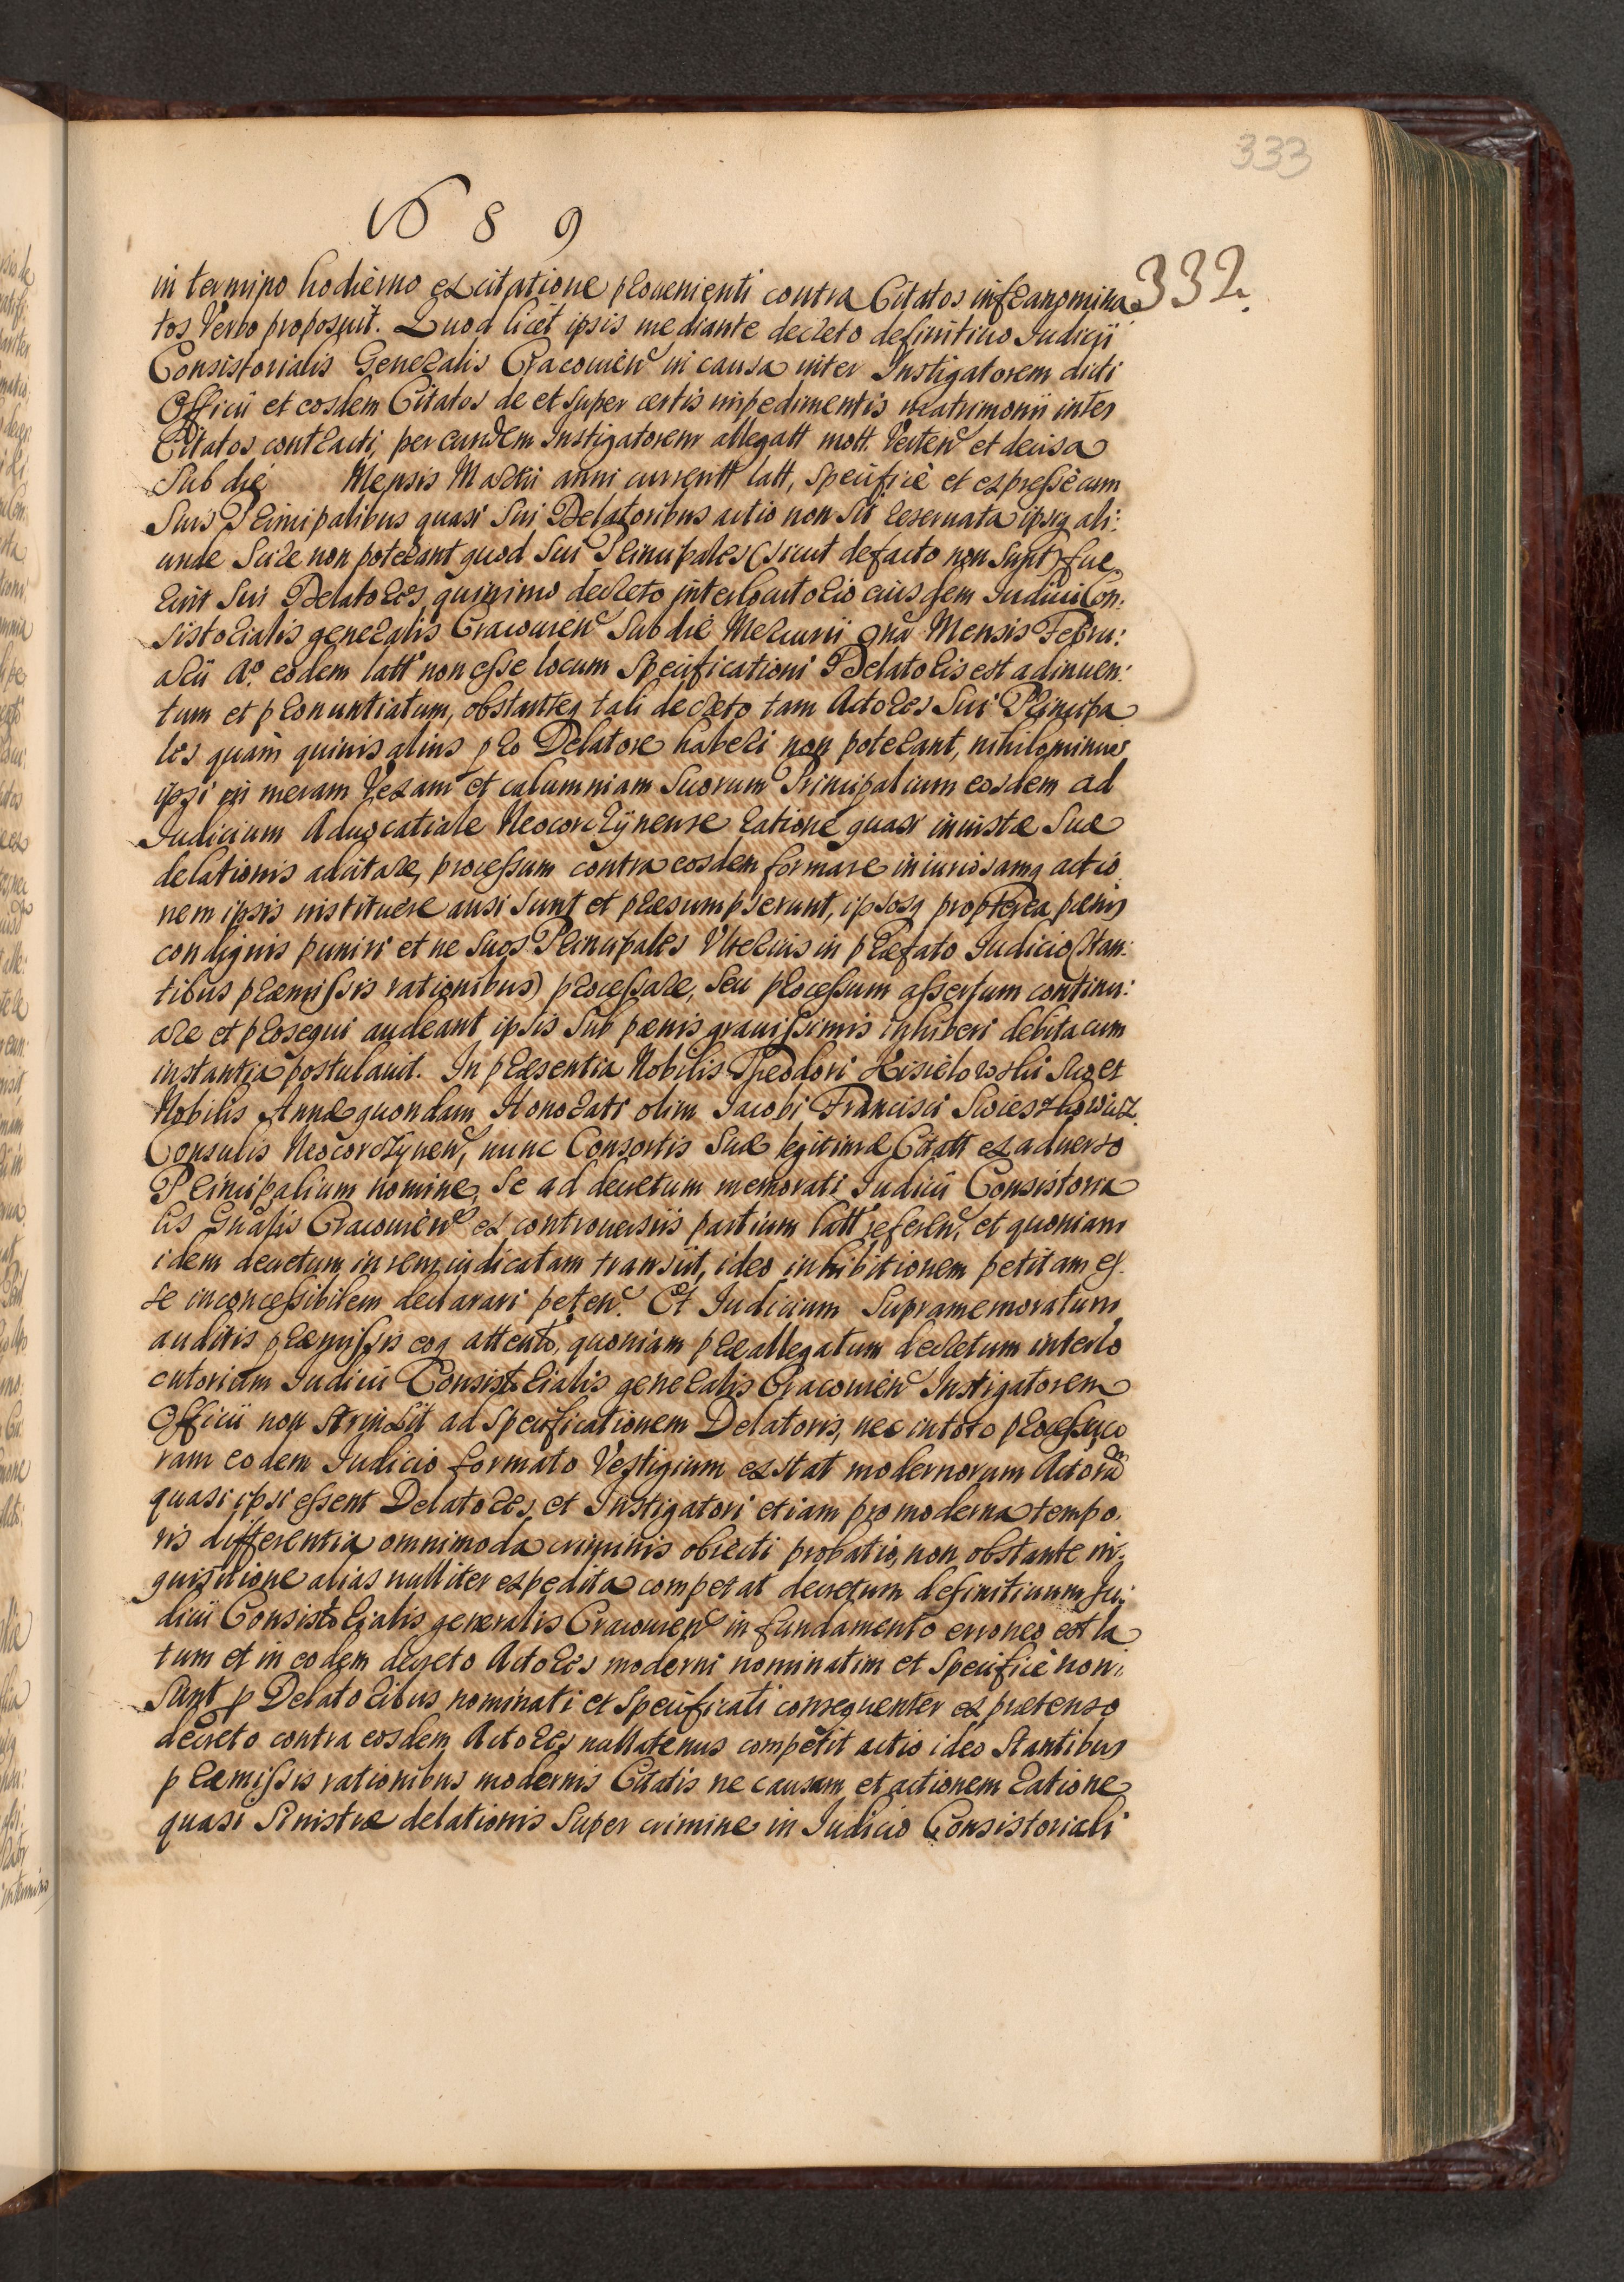 333
1689
332.
in termino hodierno ex citatione provenienti contra Citatos infranomina
tos Verbo proposuit. Quod licet ipsis mediante decreto definitivo Iudicii
Consistorialis Generalis Cracovien in causa inter Instigatorem dicti
Officii et eosdem Citatos de et super certis impedimentis matrimonii inter
Citatos contracti, per eundem Instigatorem allegatt mott. Verten et decisa
Sub die Mensis Martii anni currentt latt, specifice et expresse cum
Suis Principalibus quasi Sui Delatoribus actio non sit reservata ipsiq ali:
unde Scire non poterant quod Sui Principales (sicut de facto non sunt) fue
rint Sui Delatores, quinimo decreto interlocutorio eiusdem Iudicii Con:
sistorialis generalis Cracovien Sub die Mercurii 9na Mensis Febru:
arii Ao. eodem latt non esse locum Specificationi Delatoris est adinuen:
tum et pronuntiatum, obstanteq tali decreto tam Actores Sui Principa
les quam quivis alius pro Delatore haberi non poterant, nihilominus
ipsi in meram Vexam et calumniam Suorum Principalium eosdem ad
Iudicium Advocatiale Neocorczynense ratione quasi iniustæ Suæ
delationis adcitare, processum contra eosdem formare iniuriosamq actio
nem ipsis instituere ausi sunt et præsumpserunt, ipsosq propterea pænis
condignis puniri et ne Suos Principales Ulterius in præfato Iudicio (stan:
tibus præmissis rationibus) processare, seu processum assertum continu:
are et prosequi audeant ipsis Sub pænis gravissimis inhiberi debita cum
instantia postulavit. In præsentia Nobilis Theodori Kisielowski Suo et
Nobilis Annæ quondam Honorati olim Iacobi Francisci Swieszkowicz
Consulis Neocorczynen, nunc Consortis Suæ legitimæ Citatt ex adverso
Principalium nomine, Se ad decretum memorati Iudicii Consistoria
lis Gnalis Cracovien ex controversiis partium latt referen, et quoniam
idem decretum in rem iudicatam transiit, ideo inhibitionem petitam es
se inconcessibilem declarari peten. Et Iudicium Supramemoratum,
auditis præmissis eoq attento, quoniam præallegatum decretum interlo
cutorium Iudicii Consistorialis generalis Cracovien Instigatorem
Officii non strinxit ad Specificationem Delatoris, nec in toto processu co
ram eodem Iudicio formato Vestigium exstat modernorum Actorum
quasi ipsi essent Delatores, et Instigatori etiam pro moderna tempo
ris differentia omnimoda criminis obiecti probatio, non obstante in:
quisitione alias nulliter expedita competat decretum definitivum Iu:
dicii Consistorialis generalis Cracovien in fundamento erroneo est la
tum et in eodem decreto Actores moderni nominatim et Specifice non
sunt p Delatoribus nominati et Specificati consequenter ex prætenso
decreto contra eosdem Actores nullatenus competit actio ideo Stantibus
præmissis rationibus modernis Citatis ne causam et actionem ratione
quasi Sinistræ delationis Super crimine in Iudicio Consistoriali